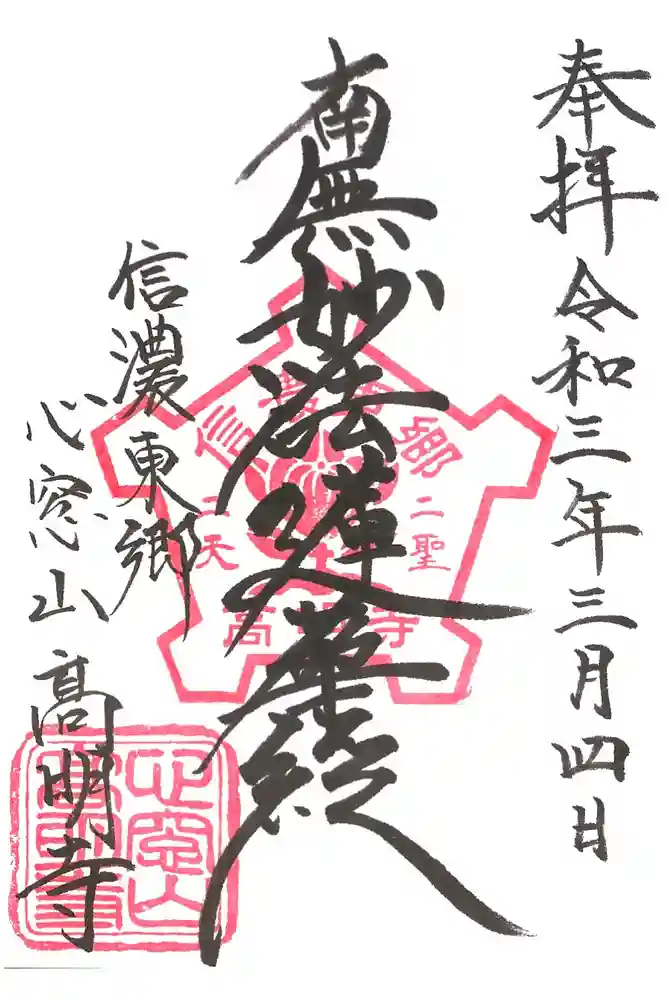 奉拝 令和三年三月四日
南無妙法蓮華経
信濃東郷
心窓山 高明寺
信濃東郷
二聖
二天
高明寺
心窓山
高明寺